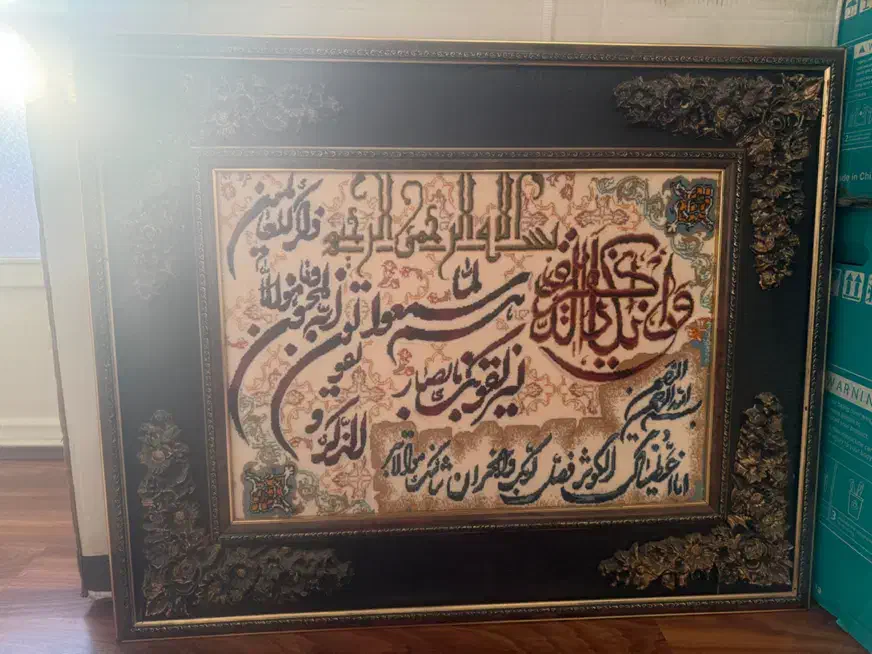 بسم الله الرحمن الرحيم
وان يكاد الذين كفروا
ليزلقونك بابصارهم
لما سمعوا
الذكر و
يقولون
انه لمجنون
وما هو الا
ذكر للعالمين
بسم الله الرحمن الرحيم
انا اعطيناك الكوثر فصل لربك وانحر ان شانئك هو الابتر
in Chi
WARNING